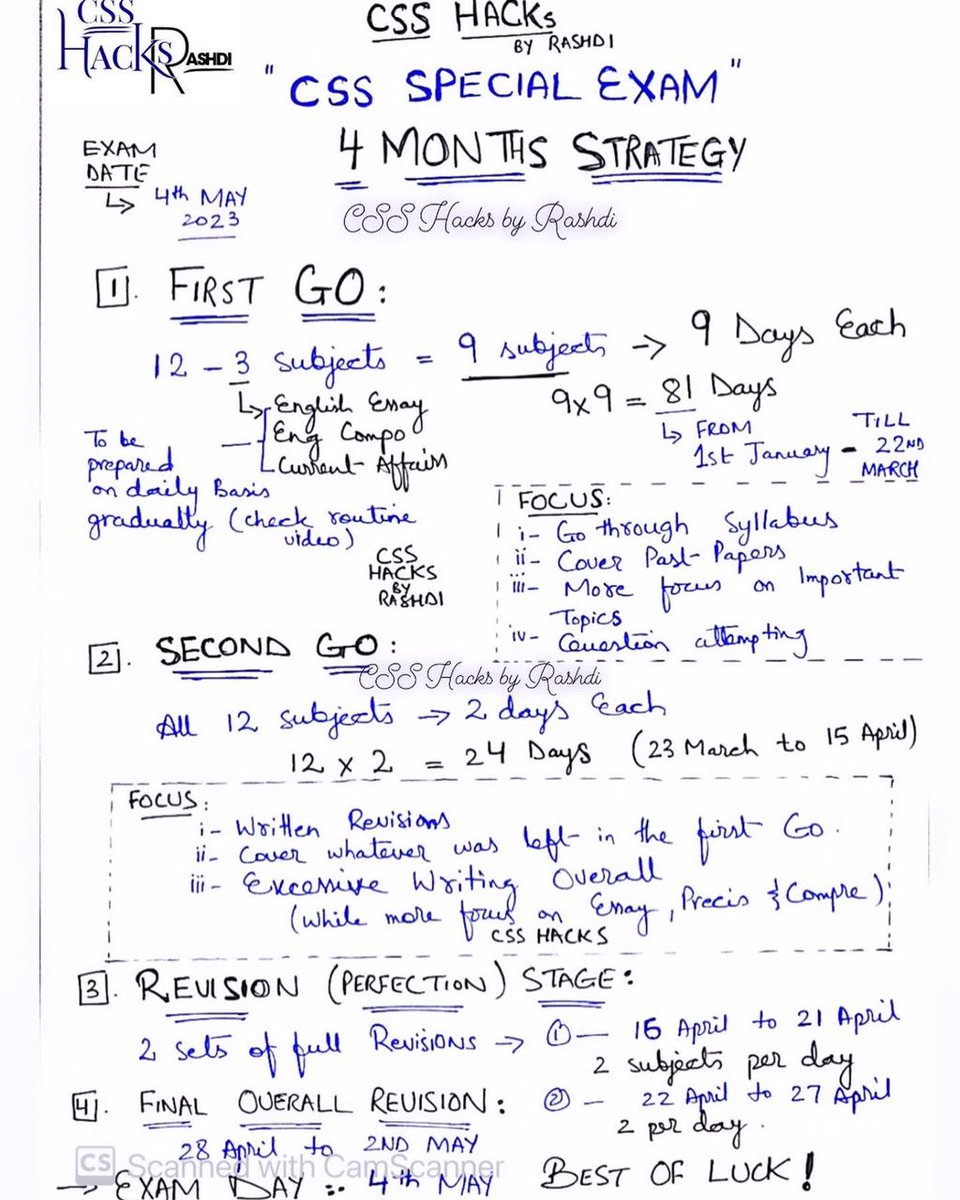 CSS
HACKS RASHDI
CSS HACKs
BY RASHDI
"CSS SPECIAL EXAM"
4 MONTHS STRATEGY
EXAM
DATE
↳ 4th MAY
2023
CSS Hacks by Rashdi
1. FIRST GO:
12 - 3 subjects = 9 subjects → 9 Days Each
9x9 = 81 Days
↳ FROM
1st January - TILL
22ND
MARCH
↳ English Essay
Eng Compo
Current Affairs
To be
prepared
on daily Basis
gradually (check routine
video)
CSS
HACKS
BY
RASHDI
FOCUS:
i- Go through Syllabus
ii- Cover Past-Papers
iii- More focus on Important
Topics
iv- Question attempting
2. SECOND GO:
CSS Hacks by Rashdi
All 12 subjects → 2 days Each
12 x 2 = 24 Days (23 March to 15 April)
FOCUS:
i- Written Revisions
ii- Cover whatever was left in the first Go.
iii- Excessive Writing Overall
(while more focus on Essay, Precis & Compre)
CSS HACKS
3. REVISION (PERFECTION) STAGE:
2 sets of full Revisions → ① — 16 April to 21 April
2 subjects per day
② - 22 April to 27 April
2 per day.
4. FINAL OVERALL REVISION:
28 April to 2ND MAY
CS Scanned with CamScanner
→ EXAM DAY :- 4th MAY
BEST OF LUCK!